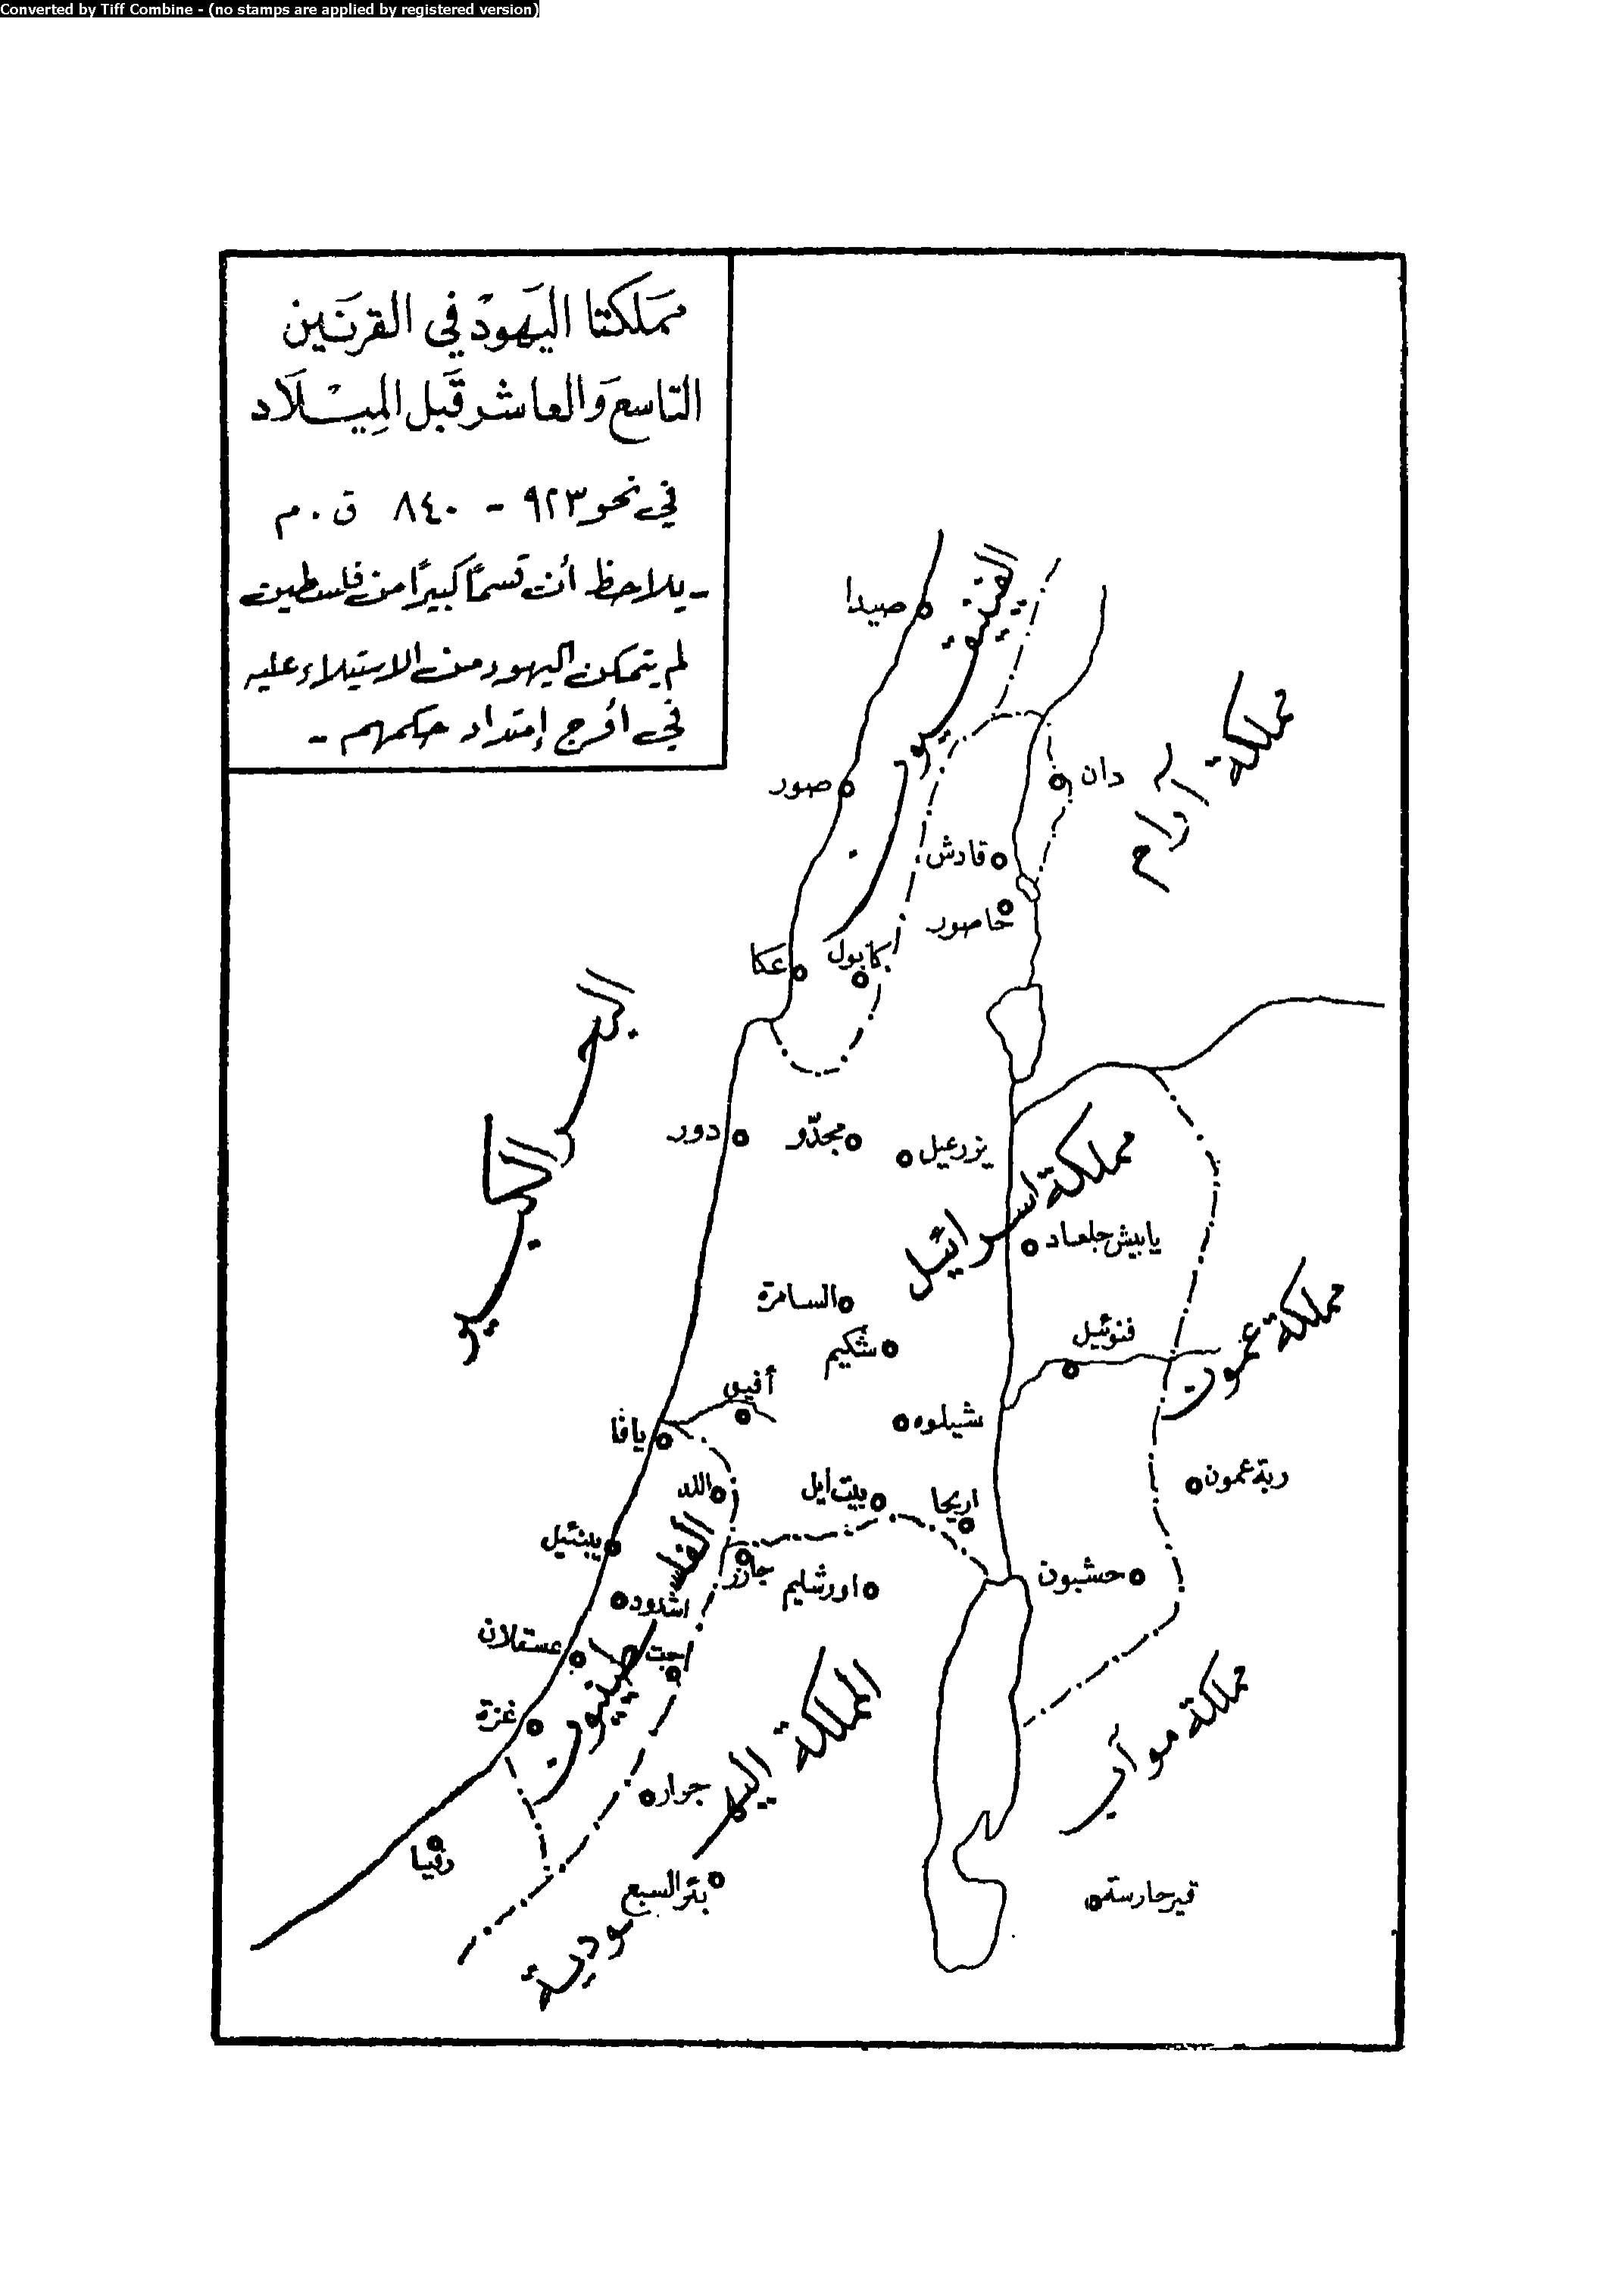 Converted by Tiff Combine - (no stamps are applied by registered version)
مَملَكتا اليَهودْ في القرنَين
التاسع وَالعاشر قَبل المِيْلَاد
في نحو ٩٢٣ - ٨٤٠ ق.م
- يلاحظ أن قسماً كبيرًا من فلسطين
لم يتمكن اليهود من الاستيلاء عليه
في أوج إمتداد حكمهم -
الفينيقيون
صيدا
مملكة آرام
صور
دان
قادش
حاصور
عكا
كابول
البحر الكبير
دور
مجدّو
يزرعيل
مملكة اسرائيل
يابيش جلعاد
السامرة
شكيم
فنوئيل
مملكة عمون
أفيق
يافا
شيلوه
ربة عمون
اللد
بيت ايل
اريحا
يبنئيل
الفلسطينيون
جازر
اورشليم
حشبون
اشدود
عسقلان
جت
غزة
المملكة اليهودية
مملكة موآب
جرار
رفيا
بئر السبع
قير حارسة